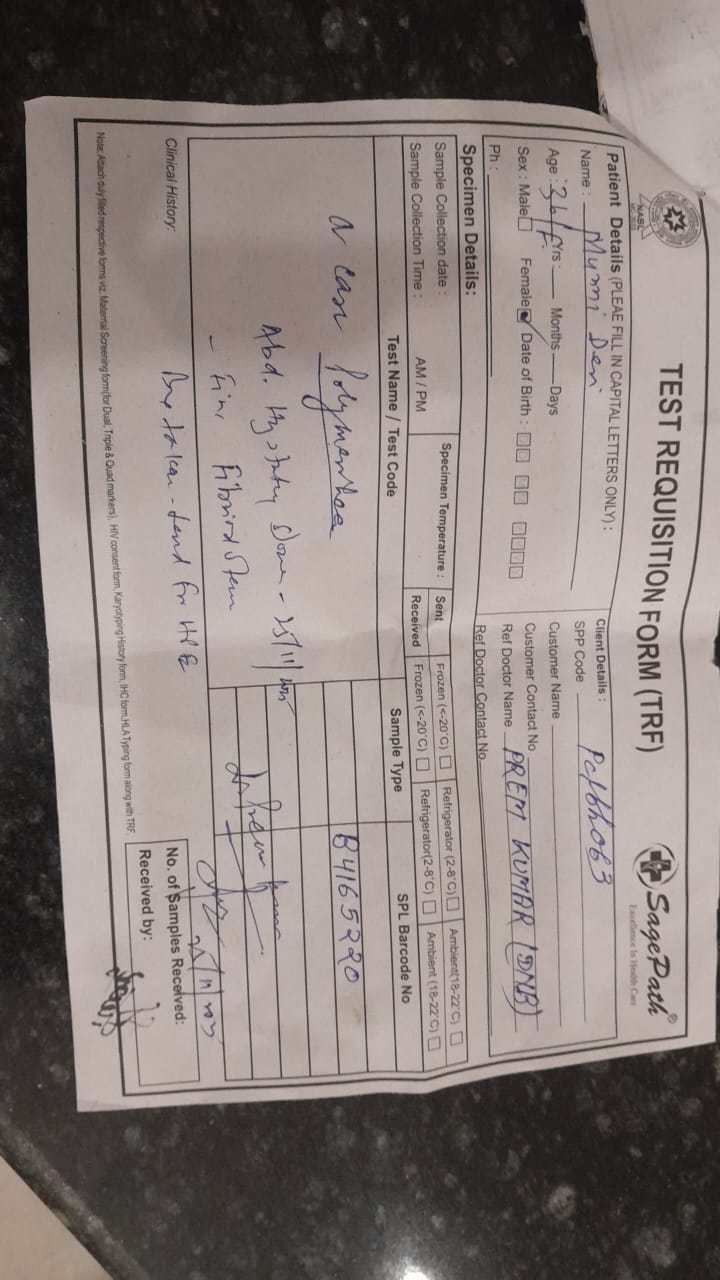 TEST REQUISITION FORM (TRF)
SagePath®
Excellence In Health Care
NABL
Patient Details (PLEAE FILL IN CAPITAL LETTERS ONLY) :
Name : Munni Devi
Age : 36/F Yrs : Months Days
Sex : Male Female Date of Birth :
Ph :
Client Details :
SPP Code
Customer Name
Customer Contact No
Ref Doctor Name PREM KUMAR (DNB)
Ref Doctor Contact No
Specimen Details:
Sample Collection date :
Sample Collection Time : AM / PM
Specimen Temperature :
Sent Frozen (<-20°C) Refrigerator (2-8°C) Ambient(18-22°C)
Received Frozen (<-20°C) Refrigerator(2-8°C) Ambient (18-22°C)
Test Name / Test Code Sample Type SPL Barcode No
B4165220
a case Polymenorrhea
Abd. Done - 25/11/
Fibroid
Clinical History: taken - send for HPE
No. of Samples Received:
Received by:
Note: Attach duly filled respective forms viz. Maternal Screening form(for Dual, Triple & Quad markers), HIV consent form, Karyotyping History form, IHC form, HLA Typing form along with TRF